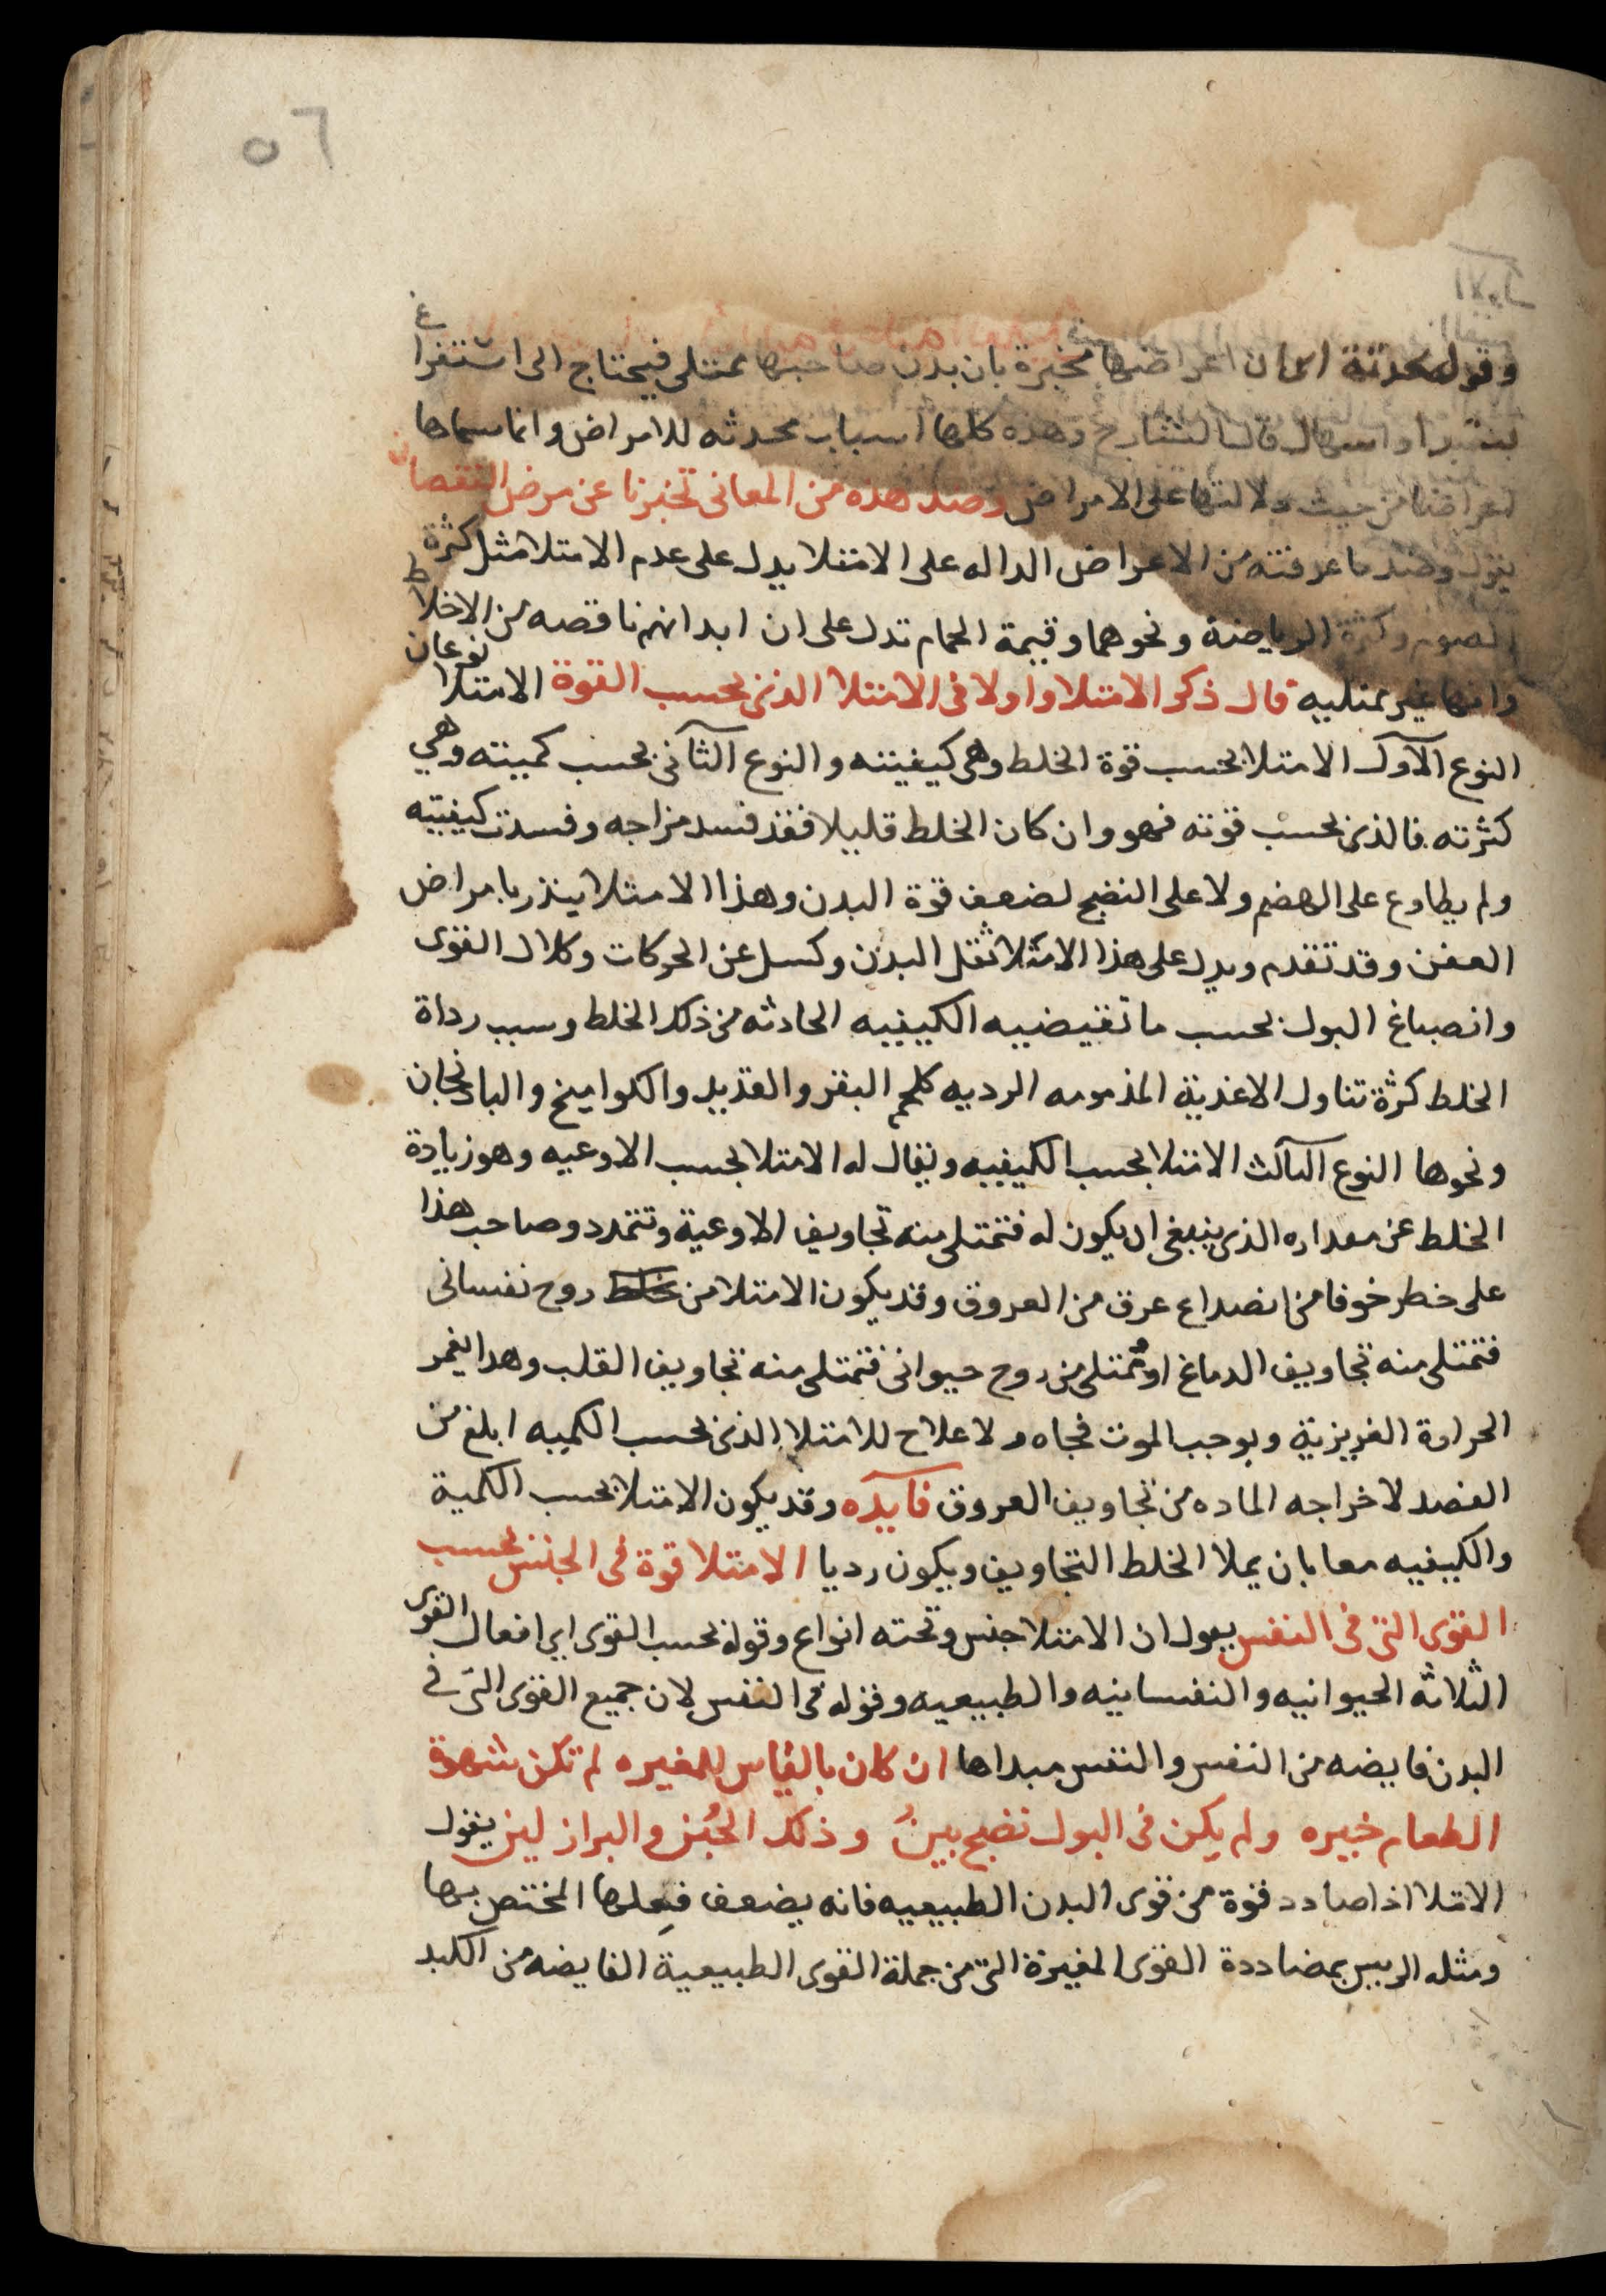 ٥٦
وقوله محدثة اى ان اعراضها مخبرة بان بدن صاحبها ممتلى فيحتاج الى استفراغ
او اسهال قال الشارح وهذه كلها اسباب محدثه للامراض وانما سماها
اعراضا من حيث دلالتها على الامراض وضد هذه من المعانى تخبرنا عن مرض النقصان
يقول وضد ما عرفته من الاعراض الداله على الامتلا يدل على عدم الامتلا مثل كثرة
الصوم وكثرة الرياضة ونحوهما وقيمة الحمام تدل على ان ابدانهم ناقصه من الاخلاط
وانها غير ممتليه قال ذكر الامتلا واولا فى الامتلا الذى بحسب القوة الامتلا نوعان
النوع الاول الامتلا بحسب قوة الخلط وهى كيفيته والنوع الثانى بحسب كميته وهي
كثرته فالذى بحسب قوته فهو وان كان الخلط قليلا فقد فسد مزاجه وفسدت كيفيته
ولم يطاوع على الهضم ولا على النضج لضعف قوة البدن وهذا الامتلا ينذر بامراض
العفن وقد تقدم ويدل على هذا الامتلا ثقل البدن وكسل عن الحركات وكلال القوى
وانصباغ البول بحسب ما تقيضيه الكيفيه الحادثه من ذلك الخلط وسبب رداة
الخلط كثرة تناول الاغذية المذمومه الرديه كلحم البقر والقديد والكواميخ والبادنجان
ونحوها النوع الثالث الامتلا بحسب الكيفيه ويقال له الامتلا بحسب الاوعيه وهو زيادة
الخلط عن مقداره الذى ينبغى ان يكون له فتمتلى منه تجاويف الاوعية وتتمدد وصاحب هذا
على خطر خوفا من انصداع عرق من العروق وقد يكون الامتلا من خلط روح نفسانى
فتمتلى منه تجاويف الدماغ او تمتلى من روح حيوانى فتمتلى منه تجاويف القلب وهدا يغمر
الحرارة الغريزية ويوجب الموت فجاه ولا علاج للامتلا الذى بحسب الكميه ابلغ من
الفصد لاخراجه الماده من تجاويف العروق فايده وقد يكون الامتلا بحسب الكمية
والكيفيه معا بان يملا الخلط التجاويف ويكون رديا الامتلا قوة فى الجنس بحسب
القوى التى فى النفس يقول ان الامتلا جنس وتحته انواع وقوله بحسب القوى اى افعال القوى
الثلاثه الحيوانيه والنفسانيه والطبيعيه وقوله فى النفس لان جميع القوى التى فى
البدن فايضه من النفس والنفس مبداها ان كان بالقياس للمغيره لم تكن شهوة
الطعام خيره ولم يكن فى البول نضج بين وذلك الخبز والبراز لين يقول
الامتلا اذا صادد قوة من قوى البدن الطبيعيه فانه يضعف فعلها المختص بها
ومثله الرييس بمضاددة القوى المغيرة التى من جملة القوى الطبيعية الفايضه من الكبد